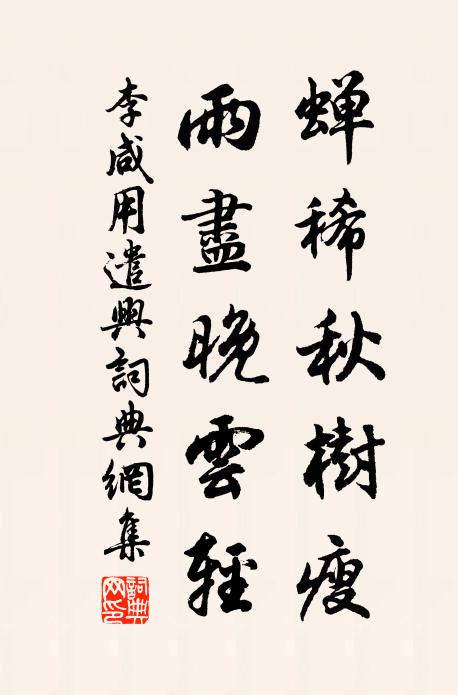 蟬稀秋樹瘦
雨盡晚雲輕
李咸用遣興詞典網集
詞典网印